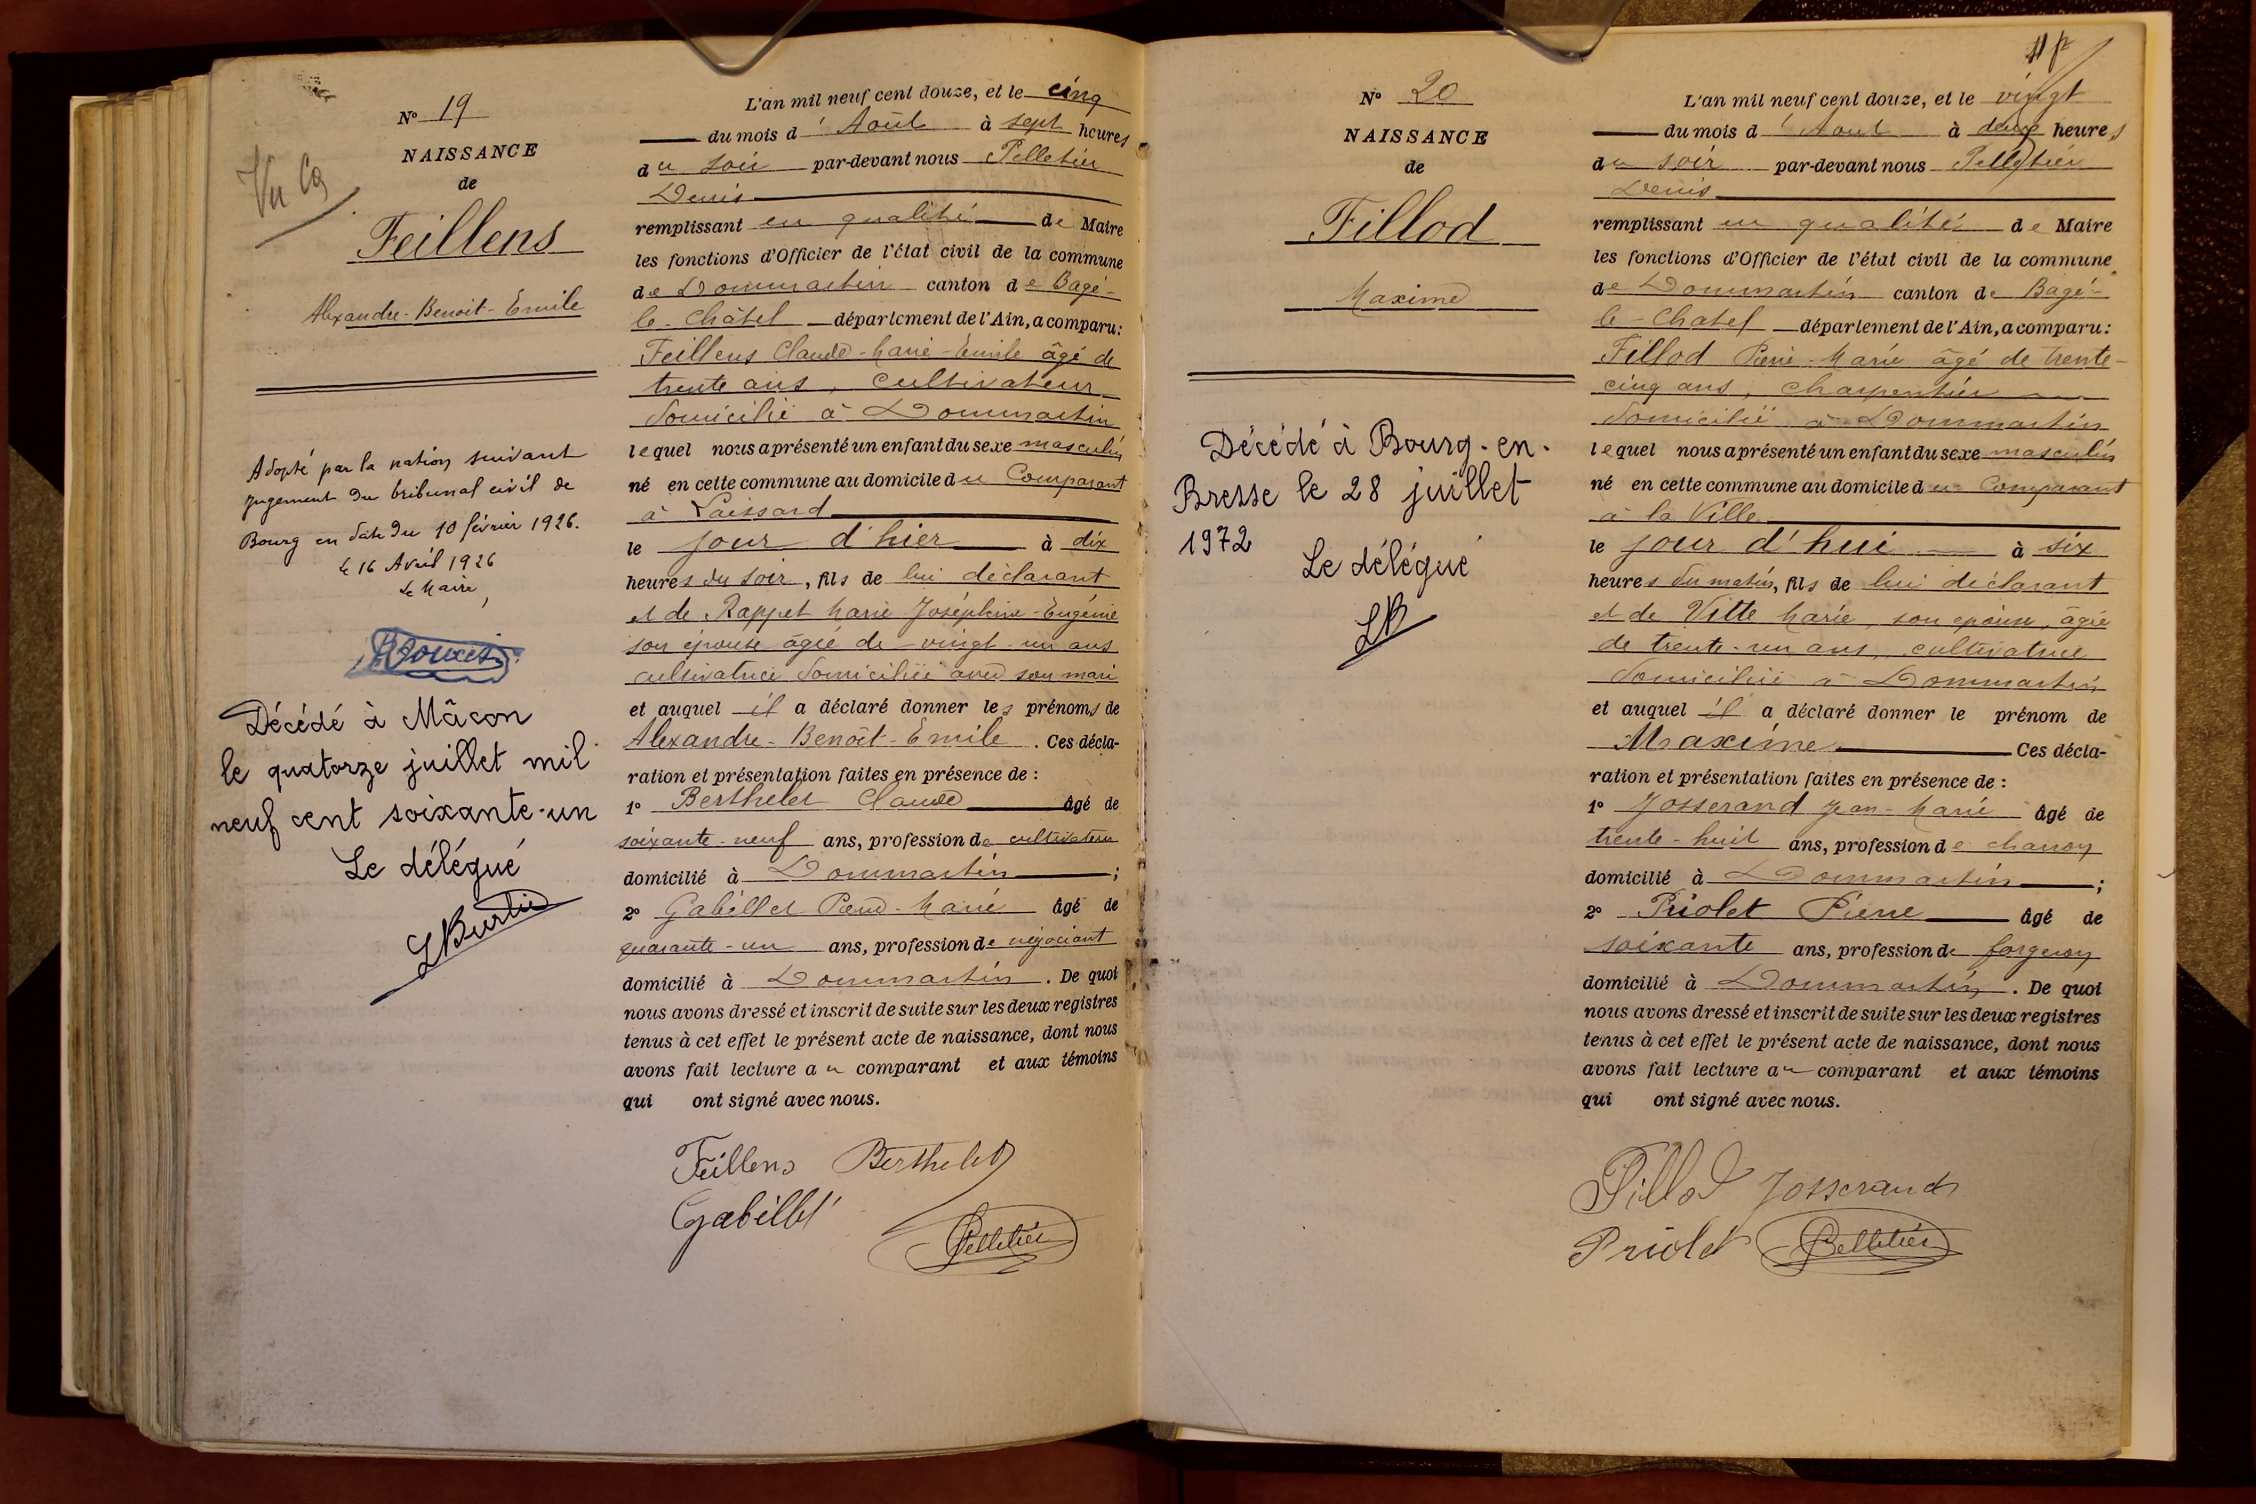 N° 19
NAISSANCE
de
Feillens
Alexandre-Benoit-Emile
Vu
Adopté par la nation suivant
jugement du tribunal civil de
Bourg en date du 10 février 1926.
le 16 Avril 1926
Le Maire,
Décédé à Mâcon
le quatorze juillet mil
neuf cent soixante-un
Le délégué
L'an mil neuf cent douze, et le cinq
du mois d'Août à sept heures
du soir par-devant nous Pelletier
Denis
remplissant en qualité de Maire
les fonctions d'Officier de l'état civil de la commune
de Dommartin canton de Bagé-
le-Châtel département de l'Ain, a comparu:
Feillens Claude-Marie-Emile âgé de
trente ans, cultivateur
domicilié à Dommartin
lequel nous a présenté un enfant du sexe masculin
né en cette commune au domicile du Comparant
à Laissard
le jour d'hier à dix
heures du soir, fils de lui déclarant
et de Rappet Marie Joséphine-Eugénie
son épouse âgée de vingt-un ans
cultivatrice domiciliée avec son mari
et auquel il a déclaré donner les prénoms de
Alexandre-Benoît-Emile. Ces décla-
ration et présentation faites en présence de:
1° Berthelet Claude âgé de
soixante-neuf ans, profession de cultivateur
domicilié à Dommartin;
2° Gabillet Pierre-Marie âgé de
quarante-un ans, profession de négociant
domicilié à Dommartin. De quoi
nous avons dressé et inscrit de suite sur les deux registres
tenus à cet effet le présent acte de naissance, dont nous
avons fait lecture au comparant et aux témoins
qui ont signé avec nous.
Feillens Berthelet
Gabillet
Pelletier
N° 20
NAISSANCE
de
Fillod
Maxime
Décédé à Bourg-en-
Bresse le 28 juillet
1972
Le délégué
LB
L'an mil neuf cent douze, et le vingt
du mois d'Aout à deux heures
du soir par-devant nous Pelletier
Denis
remplissant en qualité de Maire
les fonctions d'Officier de l'état civil de la commune
de Dommartin canton de Bagé-
le-Chatel département de l'Ain, a comparu:
Fillod Pierre-Marie âgé de trente-
cinq ans, charpentier
domicilié à Dommartin
lequel nous a présenté un enfant du sexe masculin
né en cette commune au domicile du Comparant
à la Ville
le jour d'hui à six
heures du matin, fils de lui déclarant
et de Vitte Marie, son epouse, âgée
de trente-un ans, cultivatrice
domiciliée à Dommartin
et auquel il a déclaré donner le prénom de
Maxime Ces décla-
ration et présentation faites en présence de:
1° Josserand Jean-Marie âgé de
trente-huit ans, profession de charron
domicilié à Dommartin;
2° Priolet Pierre âgé de
soixante ans, profession de forgeron
domicilié à Dommartin. De quoi
nous avons dressé et inscrit de suite sur les deux registres
tenus à cet effet le présent acte de naissance, dont nous
avons fait lecture au comparant et aux témoins
qui ont signé avec nous.
Fillod Josserand
Priolet Pelletier